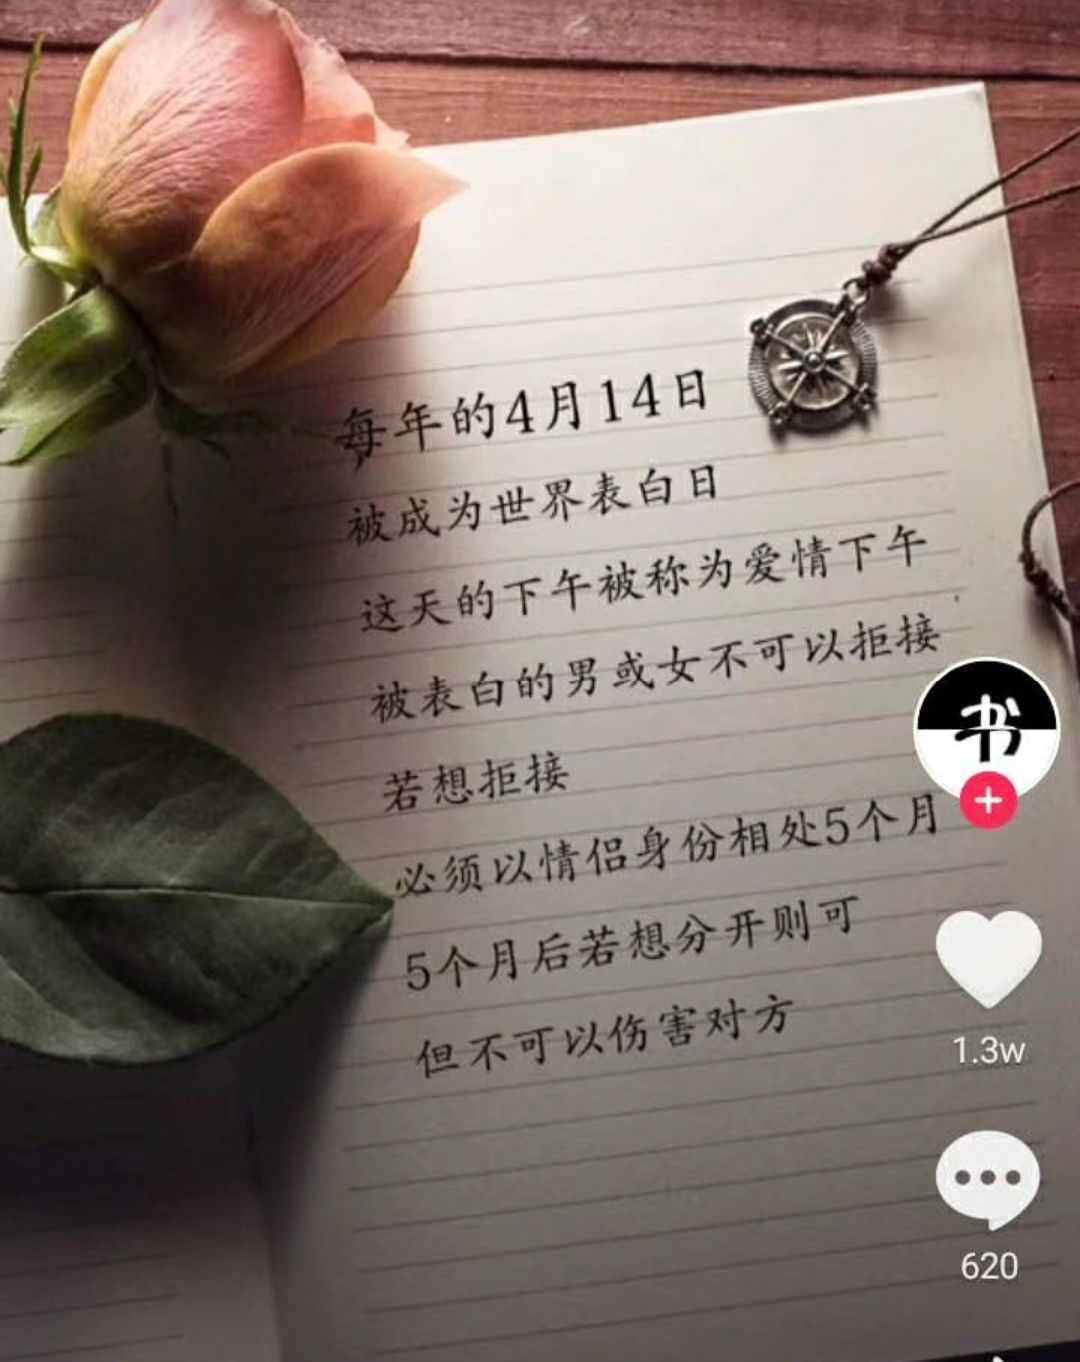 每年的4月14日
被成为世界表白日
这天的下午被称为爱情下午
被表白的男或女不可以拒接
若想拒接
必须以情侣身份相处5个月
5个月后若想分开则可
但不可以伤害对方
书
1.3w
620